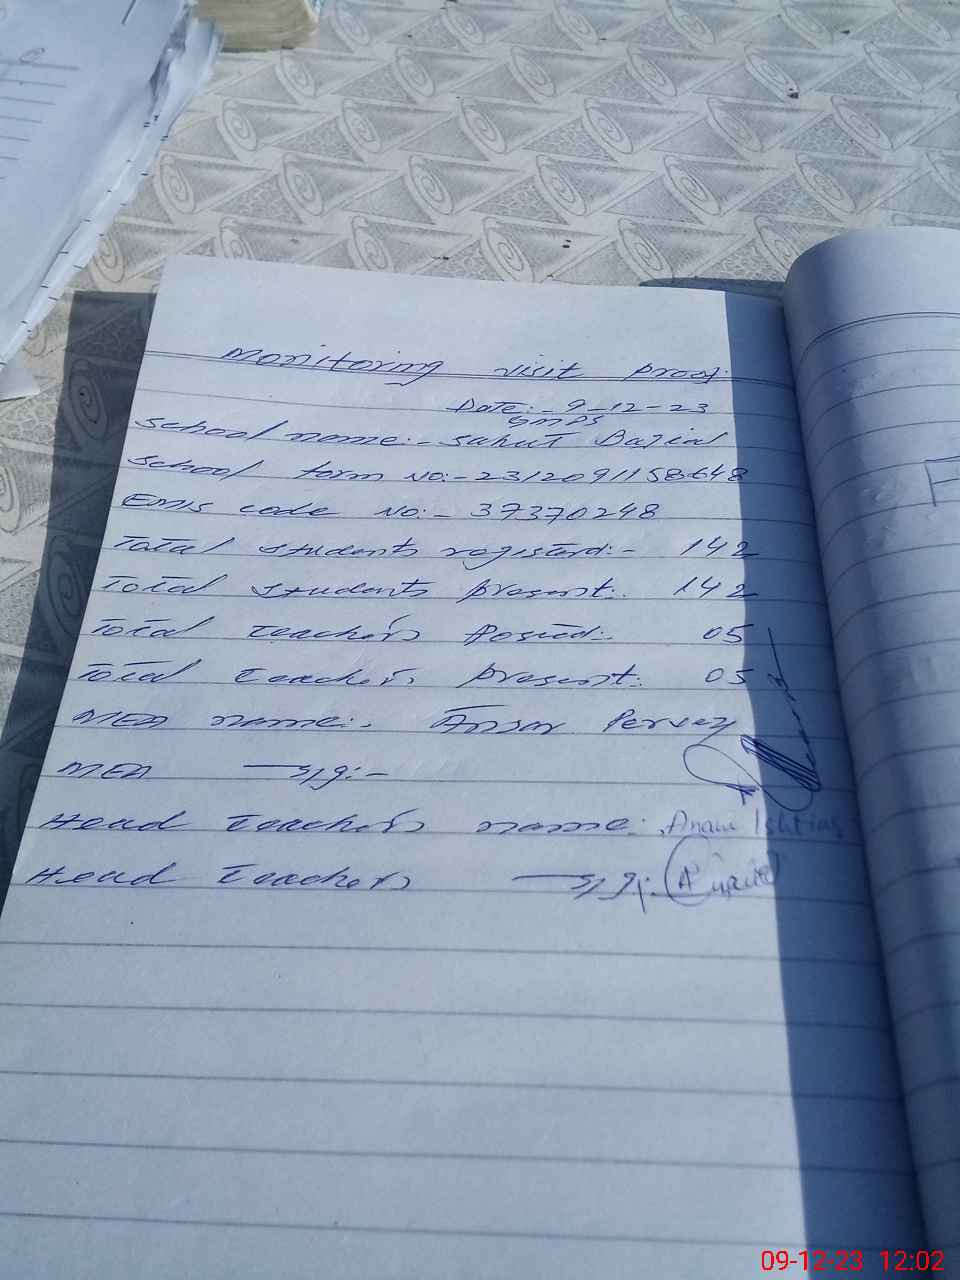 Monitoring visit proof.
Date:- 9-12-23
GMPS
School name:- Sukut Bajial
School form No:- 2312091158648
EMIS code No:- 37370248
Total students registerd:- 142
Total students present:. 142
Total teachers Posted:. 05
Total teachers present:. 05
MEA name:. Ansar Pervez
MEA sig:-
Head teachers name:. Anam Ishtiaq
Head teachers sig:.
09-12-23 12:02